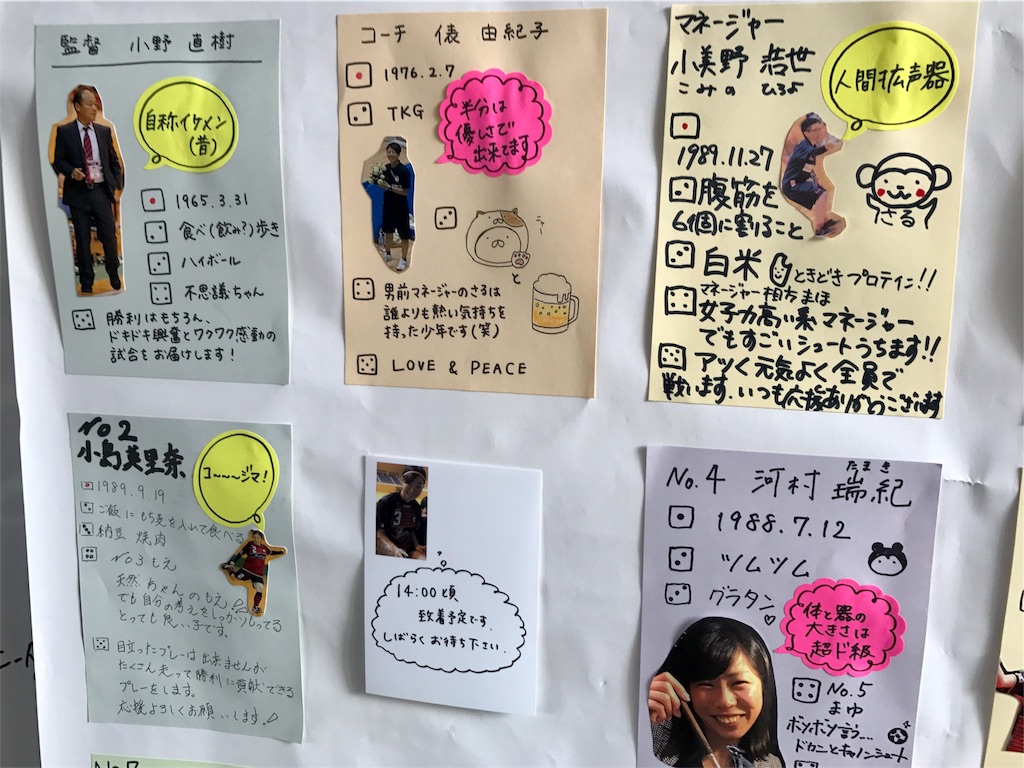 監督 小野 直樹
自称イケメン
(昔)
1965.3.31
食べ(飲み?)歩き
ハイボール
不思議ちゃん
勝利はもちろん、
ドキドキ興奮とワクワク感動の
試合をお届けします!
コーチ 俵 由紀子
1976.2.7
TKG
半分は
優しさで
出来てます
ニャー
と
男前マネージャーのさるは
誰よりも熱い気持ちを
持った少年です(笑)
LOVE & PEACE
マネージャー
小美野 浩世
こみの ひろよ
人間拡声器
1989.11.27
腹筋を
6個に割ること
さる
白米 ときどきプロテイン!!
マネージャー相方まほ
女子力高い系マネージャー
でもすごいシュートうちます!!
アツく元気よく全員で
戦います。いつも応援ありがとうございます
No2
小島美里奈
コ~~~ジマ!
1989.9.19
ご飯にもち麦を入れて食べる
納豆 焼肉
No3 もえ
天然ちゃんのもえ
でも自分の考えをしっかりもってる
とっても良い子です。
目立ったプレーは出来ませんが
たくさん走って勝利に貢献できる
プレーをします。
応援よろしくお願いします!
14:00頃
致着予定です。
しばらくお待ち下さい.
No.4 河村 瑞紀
たまき
1988.7.12
ツムツム
グラタン
体と器の
大きさは
超ド級
No.5
まゆ
ボソボソ言う....
ドカンとキャノンシュート
No7